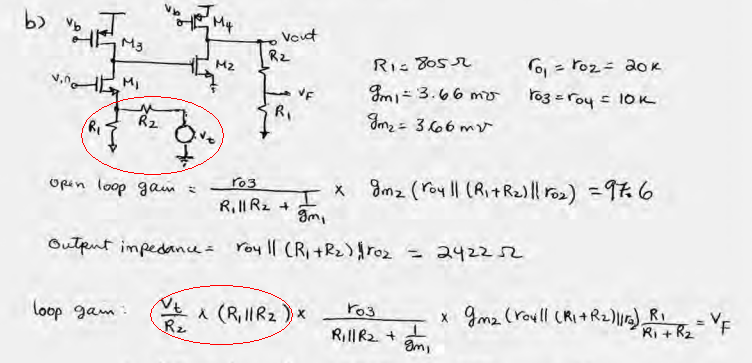 b)
Vb
M3
Vb
M4
Vout
M2
R2
VF
R1
Vin
M1
R1
R2
Vt
R1 = 805 Ω
ro1 = ro2 = 20K
gm1 = 3.66 mʊ
ro3 = ro4 = 10K
gm2 = 3.66 mʊ
open loop gain = ro3 / (R1||R2 + 1/gm1) × gm2 (ro4 || (R1+R2) || ro2) = 97.6
Output impedance = ro4 || (R1+R2) || ro2 = 2422 Ω
loop gain: Vt/R2 × (R1||R2) × ro3 / (R1||R2 + 1/gm1) × gm2 (ro4 || (R1+R2) || r2) R1/(R1+R2) = VF